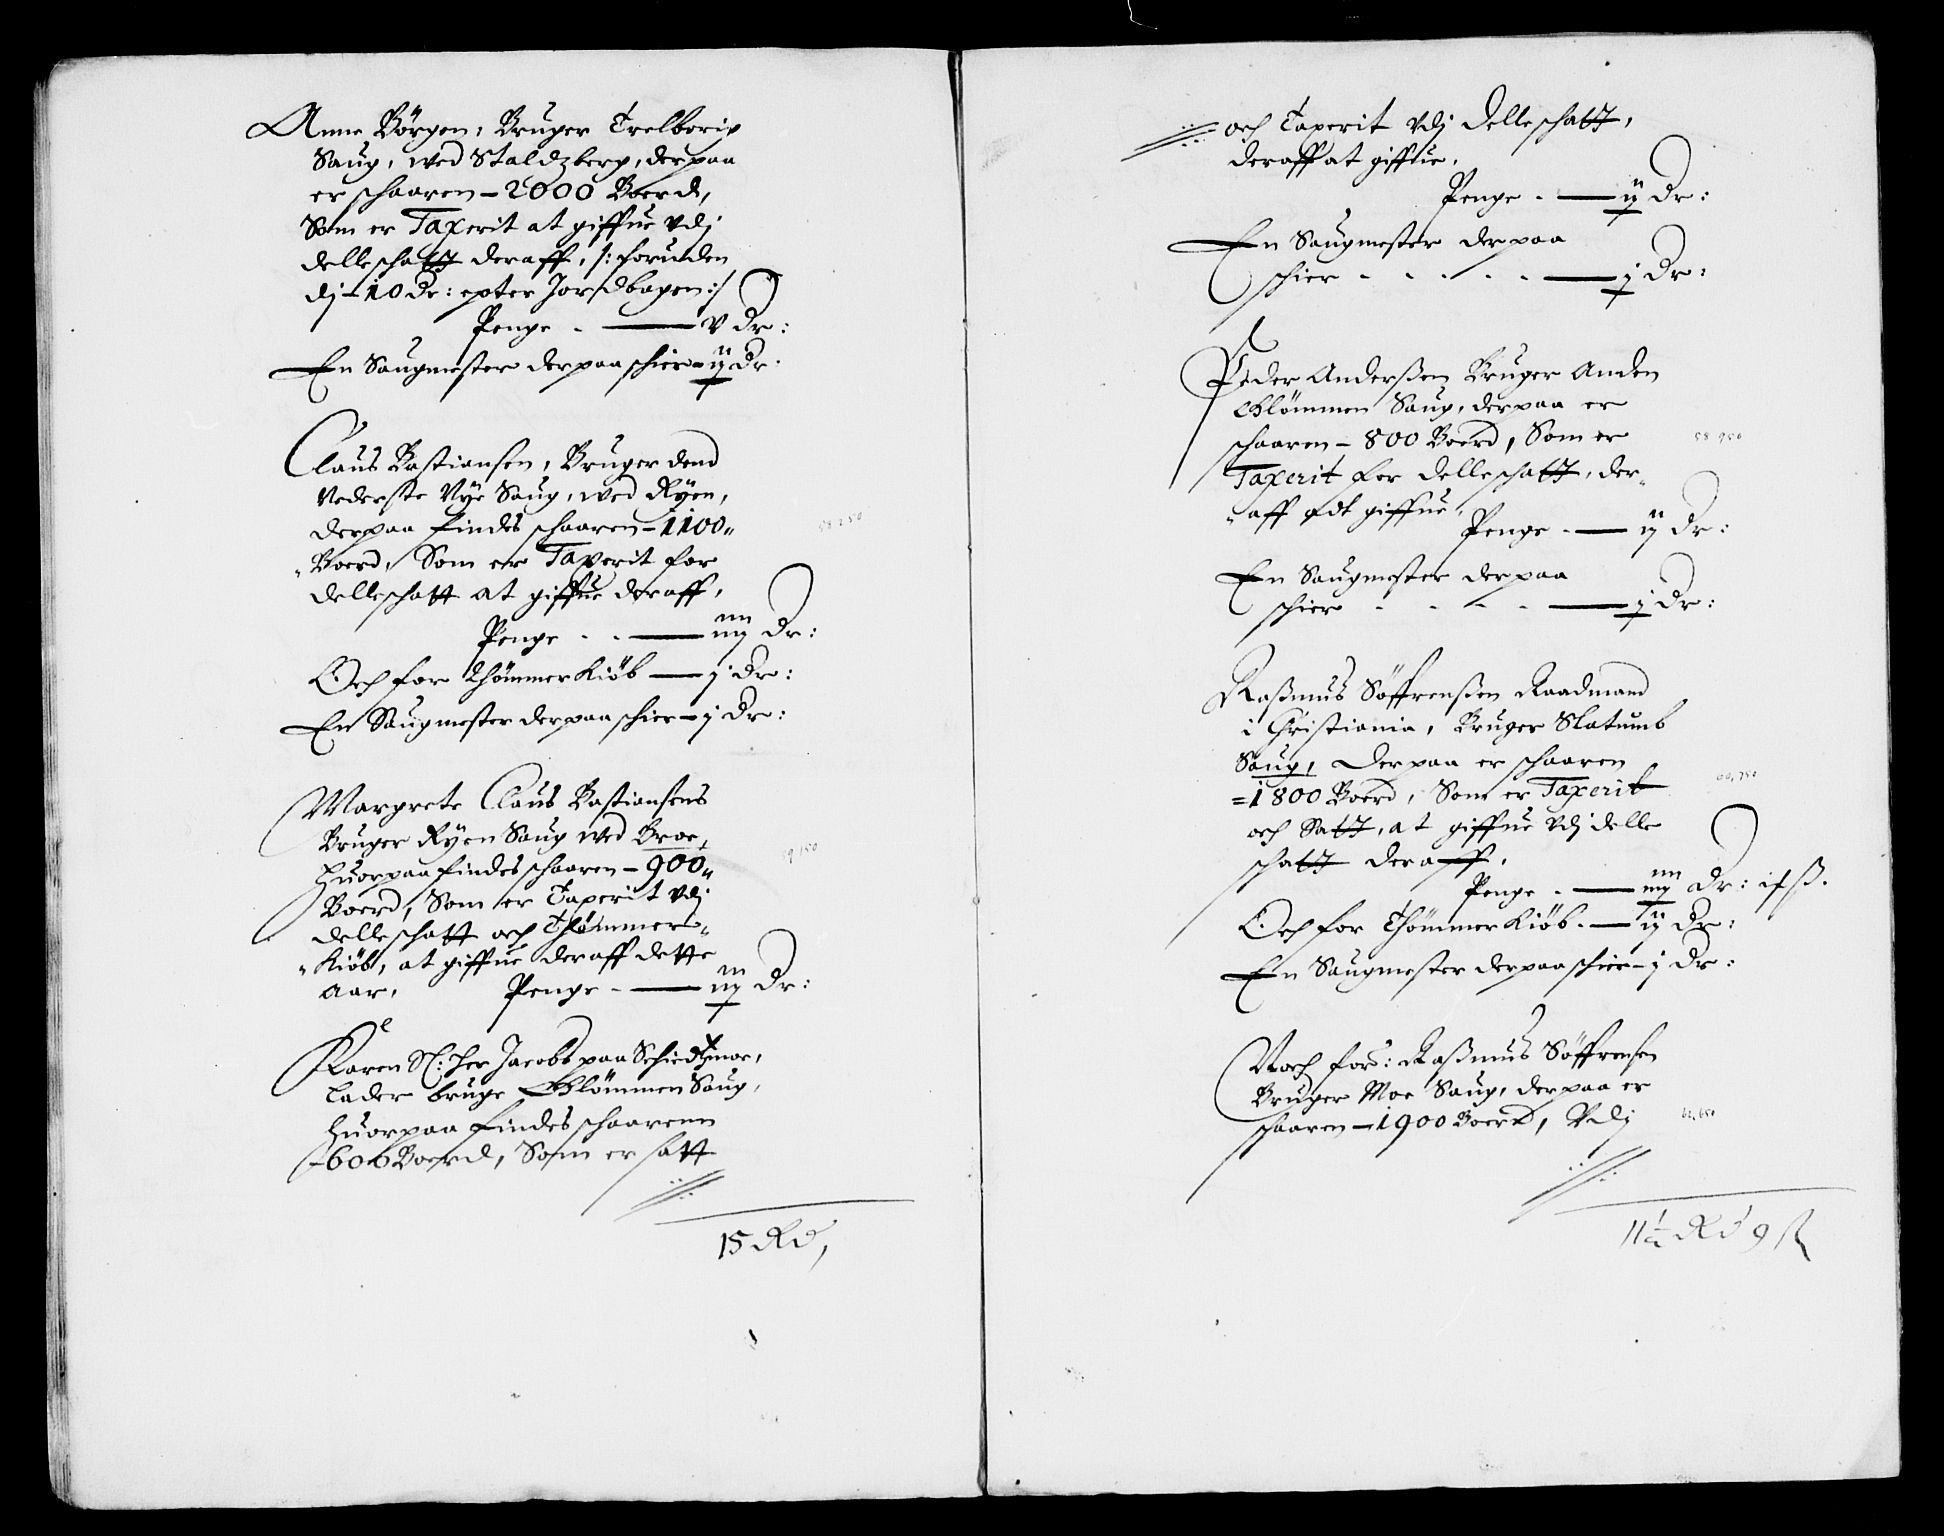 Anne Børgen, Bruger Trelborig
Saug, wed Staldzberg, derpaa
er schaaren - 2000 Boerd,
Som er Taxerit at giffue vdj
delleschatt deraff, /: foruden
dj - 10 Dr: epter Jordbogen :/
Penge - — v Dr:
En Saugmester derpaa schier - ij Dr.
Claus Bastiansen, Bruger dend
Nederste Nye Saug, wed Ryen,
derpaa findes schaaren - 1100
Boerd, Som er Taxerit for
delleschatt at giffue deraff,
Penge - - — iiij Dr:
Och for Thømmer Kiøb — j Dr:
En Saugmester derpaa schier - j Dr:
58250
Margrete Claus Bastiansens
Bruger Ryen Saug wed Broe,
Huorpaa findes schaaren - 900
Boerd, Som er Taxerit vdj
delleschatt och Thømmer-
Kiøb, at giffue deraff dette
Aar, Penge - — iij Dr:
Karen Sl: Her Jacobs paa Schiedzmoe,
Lader bruge Glømmen Saug,
Huorpaa findes schaarenn
- 606 Boerd, Som er satt
15 Rd,
och Taxerit vdj delleschatt,
deraff at giffue,
Penge - — ij Dr:
En Saugmester derpaa
schier - - - - - — j Dr:
Peder Anderßen Bruger Anden
Glømmen Saug, derpaa er
schaaren - 800 Boerd, Som er
Taxerit for delleschatt, der-
aff at giffue,
Penge - — ij Dr:
En Saugmester derpaa
schier - - - - — j Dr:
58950
Raßmus Søffrenßen Raadmand
i Christiania, Bruger Slatumb
Saug, Derpaa er schaaren
= 1800 Boerd, Som er Taxerit
och Satt, at giffue vdj delle
schatt deraff,
Penge - — iiij Dr: ß.
Och for Thømmer Kiøb - — ij Dr:
En Saugmester derpaa schier - j Dr:
60,750
Noch for: Raßmus Søffrensen
Bruger Moe Saug, derpaa er
schaaren - 1900 Boerd, Vdj
62,650
11½ Rd 9 ß